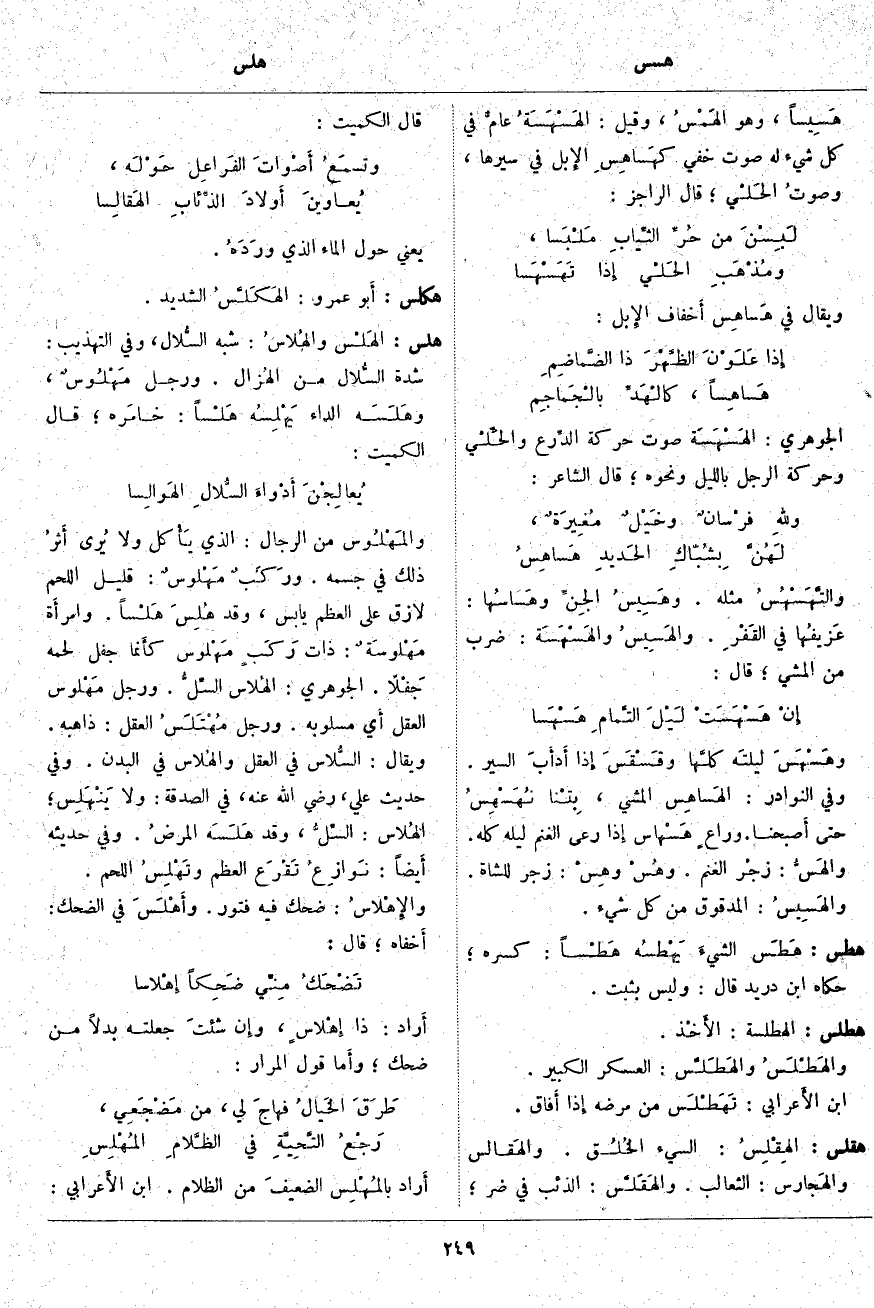 هسس
هلس
هَسِيساً ، وهو الهَمْسُ ، وقيل : الهَسْهَسَةُ عامٌّ في
كل شيء له صوت خفي كهَساهِسِ الإبل في سيرها ،
وصوتُ الحَلْيِ ؛ قال الراجز :
لَبِسْنَ من حُرِّ الثِّيابِ مَلْبَسا ،
ومُذْهَبِ الحَلْيِ إذا تَهَسْهَسا
ويقال في هَساهِسِ أخفاف الإبل :
إذا عَلَوْنَ الظَّهْرَ ذا الضَّماضِمِ
هَساهِساً ، كالهَدِّ بالجَماجِمِ
الجوهري : الهَسْهَسَة صوت حركة الدِّرع والحَلْيِ
وحركة الرجل بالليل ونحوه ؛ قال الشاعر :
وللهِ فرْسانٌ وخَيْلٌ مُغِيرَةٌ ،
لَهُنَّ بِشُبَّاكِ الحَديدِ هَساهِسُ
والتَّهَسْهُسُ مثله . وهَسِيسُ الجِنِّ وهَساسُها :
عَزِيفُها في القَفْرِ . والهَسِيسُ والهَسْهَسَة : ضرب
من المشي ؛ قال :
إنْ هَسْهَسَتْ لَيْلَ التَّمامِ هَسْهَسا
وهَسْهَسَ ليلته كلَّها وقَسْقَسَ إذا أدأبَ السير .
وفي النوادر : الهَساهِس المشي ، بِتْنا نُهَسْهِسُ
حتى أصبحنا. وراعٍ هَسْهاس إذا رعى الغنم ليله كله.
والهَسُّ : زجْر الغنم . وهُسْ وهِسْ : زجر للشاة .
والهَسِيسُ : المدقوق من كل شيء .
هطس : هَطَسَ الشيءَ يَهْطِسُه هَطْساً : كسره ؛
حكاه ابن دريد قال : وليس بثبت .
هطلس : الهطلسة : الأخْذ .
والهَطْلَسُ والهَطَلَّسُ : العسكر الكبير .
ابن الأعرابي : تَهَطْلَسَ من مرضه إذا أفاق .
هقلس : الهِقْلِسُ : السيء الخُلُق . والهَقالس
والهَجارس : الثعالب . والهَقَلَّسُ : الذئب في ضر ؛
قال الكميت :
وتسمَعُ أصْواتَ الفَراعِلِ حَوْلَه ،
يُعاوِينَ أولادَ الذِّئابِ الهَقالِسا
يعني حول الماء الذي ورَدَهُ .
هكلس : أبو عمرو : الهَكَلَّسُ الشديد .
هلس : الهَلْس والهُلاسُ : شبه السُّلال، وفي التهذيب:
شدة السُّلال من الهُزال . ورجل مَهْلُوسٌ ،
وهَلَسَه الداء يَهْلِسُه هَلْساً : خامَره ؛ قال
الكميت :
يُعالِجْنَ أدْواءَ السُّلالِ الهَوالِسا
والمَهْلُوس من الرجال : الذي يَأْكل ولا يُرى أثرُ
ذلك في جسمه . ورَكَبٌ مَهْلوسٌ : قليل اللحم
لازق على العظم يابس ، وقد هُلِسَ هَلْساً . وامرأة
مَهْلوسَةٌ : ذات رَكَبٍ مَهْلوس كأنما جفل لحمه
جَفْلًا . الجوهري : الهُلاس السِّلُّ . ورجل مَهْلوس
العقل أي مسلوبه . ورجل مُهْتَلَسُ العقل : ذاهبه .
ويقال : السُّلاس في العقل والهُلاس في البدن . وفي
حديث علي، رضي الله عنه، في الصدقة: ولا يَنْهَلِس؛
الهُلاس : السِّلُّ ، وقد هَلَسَه المرضُ . وفي حديثه
أيضاً : نَوازِعُ تَقْرَع العظم وتَهْلِسُ اللحم .
والإهْلاسُ : ضحك فيه فتور. وأهْلَسَ في الضحك:
أخفاه ؛ قال :
تَضْحَكُ مِنِّي ضَحِكاً إهْلاسا
أراد : ذا إهْلاسٍ ، وإن شئتَ جعلته بدلاً من
ضحك ؛ وأما قول المرار :
طَرَقَ الخَيالُ فهاجَ لي، من مَضْجَعِي ،
رَجْعُ التَّحِيَّةِ في الظَّلامِ المُهْلِسِ
أراد بالمُهْلِس الضعيفَ من الظلام . ابن الأعرابي :
٢٤٩